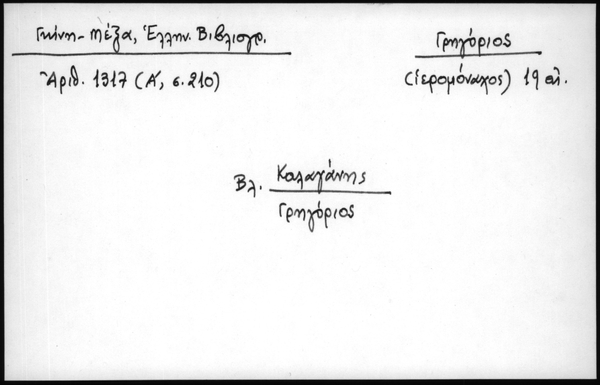 Γκίνη-Μέξα, Ἑλλην. Βιβλιογρ.
Ἀριθ. 1317 (Α΄, σ. 210)
Γρηγόριος
(ἱερομόναχος) 19 αἰ.
Βλ. Καλαγάνης
Γρηγόριος